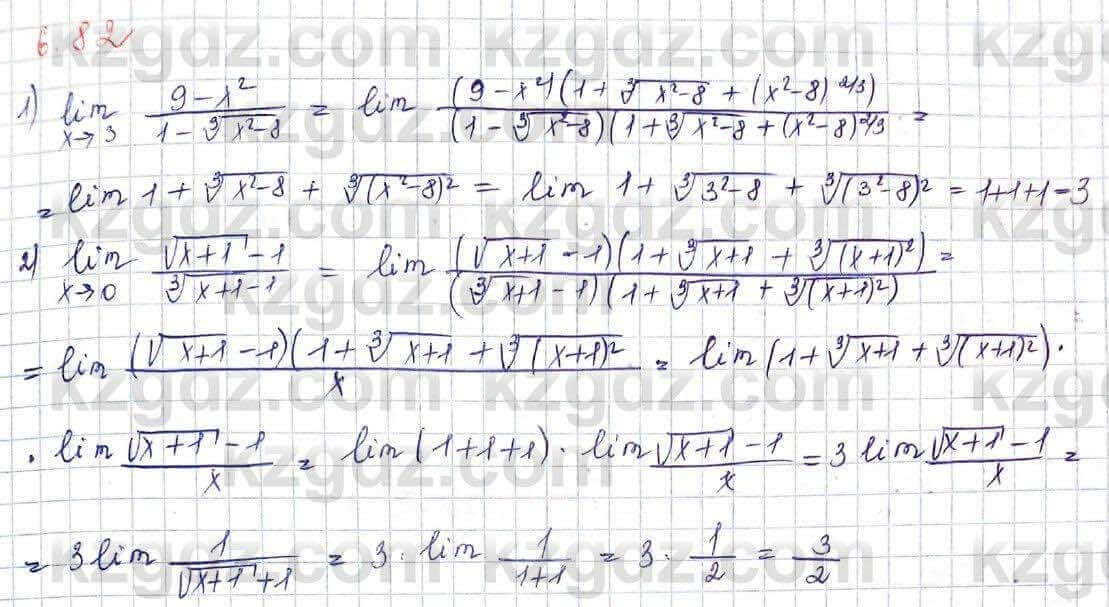 6.82
1) lim x→3 (9-x²)/(1-∛(x²-8)) = lim ((9-x²)(1+∛(x²-8)+(x²-8)^2/3))/((1-∛(x²-8))(1+∛(x²-8)+(x²-8)^2/3) =
= lim 1+∛(x²-8)+∛((x²-8)²) = lim 1+∛(3²-8)+∛((3²-8)²) = 1+1+1=3
2) lim x→0 (√(x+1)-1)/(∛(x+1)-1) = lim ((√(x+1)-1)(1+∛(x+1)+∛((x+1)²)))/((∛(x+1)-1)(1+∛(x+1)+∛((x+1)²))) =
= lim ((√(x+1)-1)(1+∛(x+1)+∛((x+1)²))/x = lim (1+∛(x+1)+∛((x+1)²)) ·
· lim (√(x+1)-1)/x = lim (1+1+1) · lim (√(x+1)-1)/x = 3 lim (√(x+1)-1)/x =
= 3 lim 1/(√(x+1)+1) = 3 · lim 1/(1+1) = 3 · 1/2 = 3/2
kzgdz.com